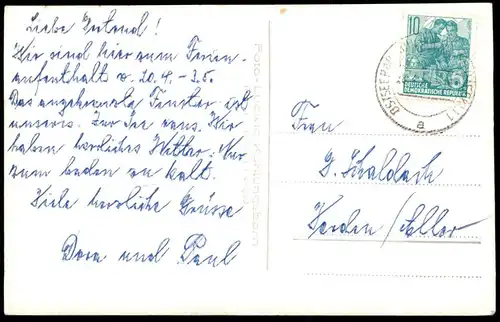 Liebe Gertrud!
Wir sind hier zum Ferien-
aufenthalt v. 20.4. - 3.5.
Das angekreuzte Fenster ist
unseres. Wir
haben herrliches Wetter. Nur
zum baden zu kalt.
Viele herzliche Grüsse
Dora und Paul
Frau
G. Schaldach
Verden / Aller
10
DEUTSCHE
DEMOKRATISCHE REPUBLIK
OSTSEEBAD
a